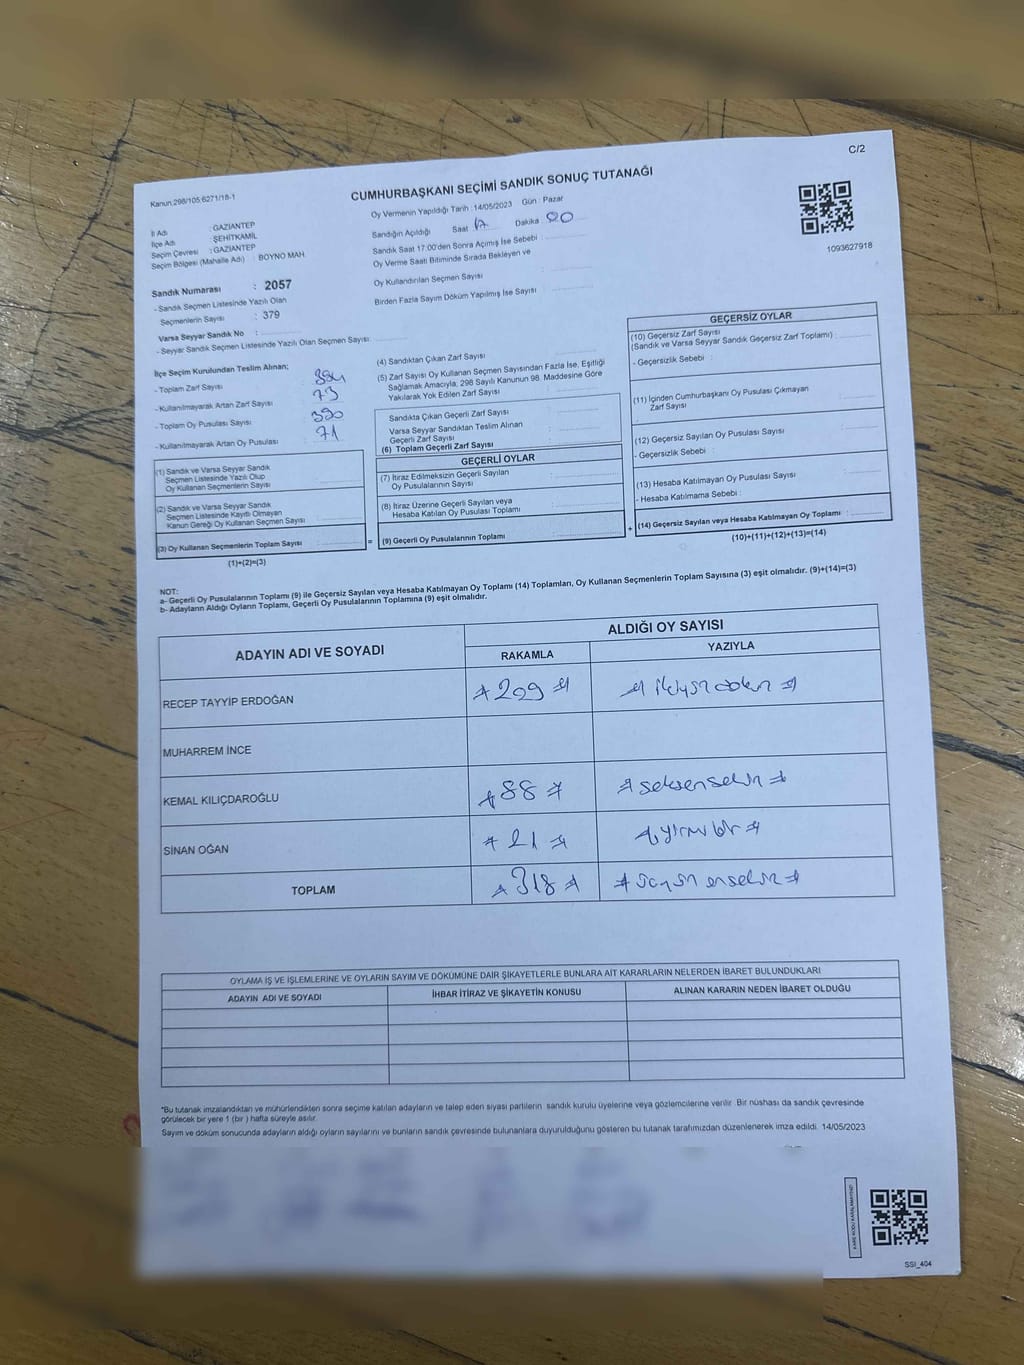 C/2
Kanun:298/105;6271/18-1
CUMHURBAŞKANI SEÇİMİ SANDIK SONUÇ TUTANAĞI
İl Adı : GAZIANTEP
İlçe Adı : ŞEHİTKAMİL
Seçim Çevresi : GAZIANTEP
Seçim Bölgesi (Mahalle Adı) : BOYNO MAH.
Oy Vermenin Yapıldığı Tarih :14/05/2023 Gün : Pazar
Sandığın Açıldığı Saat 17 Dakika 00
Sandık Saat 17:00'den Sonra Açımış İse Sebebi :
Oy Verme Saati Bitiminde Sırada Bekleyen ve
Oy Kullandırılan Seçmen Sayısı :
Birden Fazla Sayım Döküm Yapılmış İse Sayısı :
1093627918
Sandık Numarası : 2057
- Sandık Seçmen Listesinde Yazılı Olan
Seçmenlerin Sayısı : 379
Varsa Seyyar Sandık No :
- Seyyar Sandık Seçmen Listesinde Yazılı Olan Seçmen Sayısı :
İlçe Seçim Kurulundan Teslim Alınan;
- Toplam Zarf Sayısı
- Kullanılmayarak Artan Zarf Sayısı : 73
- Toplam Oy Pusulası Sayısı : 390
- Kullanılmayarak Artan Oy Pusulası : 71
(1) Sandık ve Varsa Seyyar Sandık
Seçmen Listesinde Yazılı Olup
Oy Kullanan Seçmenlerin Sayısı :
(2) Sandık ve Varsa Seyyar Sandık
Seçmen Listesinde Kayıtlı Olmayan
Kanun Gereği Oy Kullanan Seçmen Sayısı :
(3) Oy Kullanan Seçmenlerin Toplam Sayısı :
(1)+(2)=(3)
=
(4) Sandıktan Çıkan Zarf Sayısı :
(5) Zarf Sayısı Oy Kullanan Seçmen Sayısından Fazla İse, Eşitliği
Sağlamak Amacıyla, 298 Sayılı Kanunun 98. Maddesine Göre
Yakılarak Yok Edilen Zarf Sayısı :
Sandıkta Çıkan Geçerli Zarf Sayısı :
Varsa Seyyar Sandıktan Teslim Alınan
Geçerli Zarf Sayısı :
(6) Toplam Geçerli Zarf Sayısı :
GEÇERLİ OYLAR
(7) İtiraz Edilmeksizin Geçerli Sayılan
Oy Pusulalarının Sayısı :
(8) İtiraz Üzerine Geçerli Sayılan veya
Hesaba Katılan Oy Pusulası Toplamı :
(9) Geçerli Oy Pusulalarının Toplamı :
+
GEÇERSİZ OYLAR
(10) Geçersiz Zarf Sayısı
(Sandık ve Varsa Seyyar Sandık Geçersiz Zarf Toplamı) :
- Geçersizlik Sebebi :
(11) İçinden Cumhurbaşkanı Oy Pusulası Çıkmayan
Zarf Sayısı :
(12) Geçersiz Sayılan Oy Pusulası Sayısı :
- Geçersizlik Sebebi :
(13) Hesaba Katılmayan Oy Pusulası Sayısı :
- Hesaba Katılmama Sebebi :
(14) Geçersiz Sayılan veya Hesaba Katılmayan Oy Toplamı :
(10)+(11)+(12)+(13)=(14)
NOT:
a- Geçerli Oy Pusulalarının Toplamı (9) ile Geçersiz Sayılan veya Hesaba Katılmayan Oy Toplamı (14) Toplamları, Oy Kullanan Seçmenlerin Toplam Sayısına (3) eşit olmalıdır. (9)+(14)=(3)
b- Adayların Aldığı Oyların Toplamı, Geçerli Oy Pusulalarının Toplamına (9) eşit olmalıdır.
ADAYIN ADI VE SOYADI
ALDIĞI OY SAYISI
RAKAMLA YAZIYLA
RECEP TAYYİP ERDOĞAN 209 ikiyüzdokuz
MUHARREM İNCE
KEMAL KILIÇDAROĞLU 88 seksensekiz
SİNAN OĞAN 21 yirmibir
TOPLAM 318 üçyüzonsekiz
OYLAMA İŞ VE İŞLEMLERİNE VE OYLARIN SAYIM VE DÖKÜMÜNE DAİR ŞİKAYETLERLE BUNLARA AİT KARARLARIN NELERDEN İBARET BULUNDUKLARI
ADAYIN ADI VE SOYADI İHBAR İTİRAZ VE ŞİKAYETİN KONUSU ALINAN KARARIN NEDEN İBARET OLDUĞU
*Bu tutanak imzalandıktan ve mühürlendikten sonra seçime katılan adayların ve talep eden siyasi partilerin sandık kurulu üyelerine veya gözlemcilerine verilir. Bir nüshası da sandık çevresinde
görülecek bir yere 1 (bir ) hafta süreyle asılır.
Sayım ve döküm sonucunda adayların aldığı oyların sayılarını ve bunların sandık çevresinde bulunanlara duyurulduğunu gösteren bu tutanak tarafımızdan düzenlenerek imza edildi. 14/05/2023
SSI_404